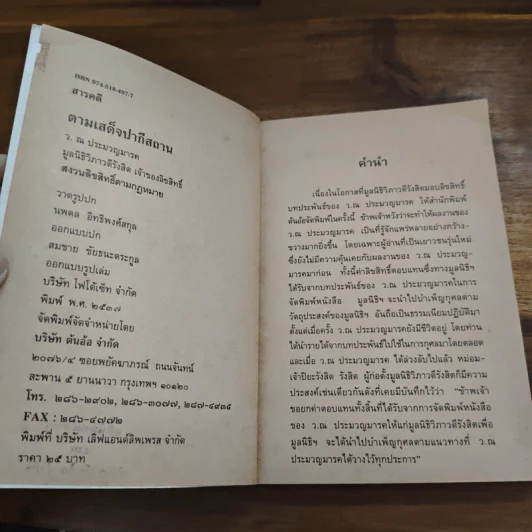 ISBN 974-519-497-7
สารคดี
ตามเสด็จปากีสถาน
ว. ณ ประมวญมารค
มูลนิธิวิภาวดีรังสิต เจ้าของลิขสิทธิ์
สงวนลิขสิทธิ์ตามกฎหมาย
วาดรูปปก
นพดล อิทธิพงศ์สกุล
ออกแบบปก
สมชาย ชัยธนะตระกูล
ออกแบบรูปเล่ม
บริษัท โฟโต้เซ็ท จำกัด
พิมพ์ พ.ศ. ๒๕๓๗
จัดพิมพ์จัดจำหน่ายโดย
บริษัท ต้นอ้อ จำกัด
๒๐๗๖/๔ ซอยพยัคฆาภรณ์ ถนนจันทน์
สะพาน ๕ ยานนาวา กรุงเทพฯ ๑๐๑๒๐
โทร. ๒๘๖-๒๙๐๒, ๒๘๖-๓๐๗๗, ๒๘๗-๔๙๓๕
FAX : ๒๘๖-๔๗๗๒
พิมพ์ที่ บริษัท เลิฟแอนด์ลิพเพรส จำกัด
ราคา ๒๕ บาท
คำนำ
เนื่องในโอกาสที่มูลนิธิวิภาวดีรังสิตมอบลิขสิทธิ์
บทประพันธ์ของ ว.ณ ประมวญมารค ให้สำนักพิมพ์
ต้นอ้อจัดพิมพ์ในครั้งนี้ ข้าพเจ้าหวังว่าจะทำให้ผลงานของ
ว.ณ ประมวญมารค เป็นที่รู้จักแพร่หลายอย่างกว้าง-
ขวางมากยิ่งขึ้น โดยเฉพาะผู้อ่านที่เป็นเยาวชนรุ่นใหม่
ซึ่งยังไม่มีความคุ้นเคยกับผลงานของ ว.ณ ประมวญ-
มารคมาก่อน ทั้งนี้ค่าลิขสิทธิ์ตอบแทนซึ่งทางมูลนิธิฯ
ได้รับจากบทประพันธ์ของ ว.ณ ประมวญมารคในการ
จัดพิมพ์หนังสือ มูลนิธิฯ จะนำไปบำเพ็ญกุศลตาม
วัตถุประสงค์ของมูลนิธิฯ อันถือเป็นธรรมเนียมปฏิบัติมา
ตั้งแต่เมื่อครั้ง ว.ณ ประมวญมารคยังมีชีวิตอยู่ โดยท่าน
ได้นำรายได้จากบทประพันธ์ไปใช้ในการกุศลมาโดยตลอด
และเมื่อ ว.ณ ประมวญมารค ได้ล่วงลับไปแล้ว หม่อม-
เจ้าปิยะรังสิต รังสิต ผู้ก่อตั้งมูลนิธิวิภาวดีรังสิตก็มีความ
ประสงค์เช่นเดียวกันดังที่เคยมีบันทึกไว้ว่า "ข้าพเจ้า
ขอยกค่าตอบแทนทั้งสิ้นที่ได้รับจากการจัดพิมพ์หนังสือ
ของ ว.ณ ประมวญมารคให้แก่มูลนิธิวิภาวดีรังสิตเพื่อ
มูลนิธิฯ จะได้นำไปบำเพ็ญกุศลตามแนวทางที่ ว.ณ
ประมวญมารคได้วางไว้ทุกประการ"